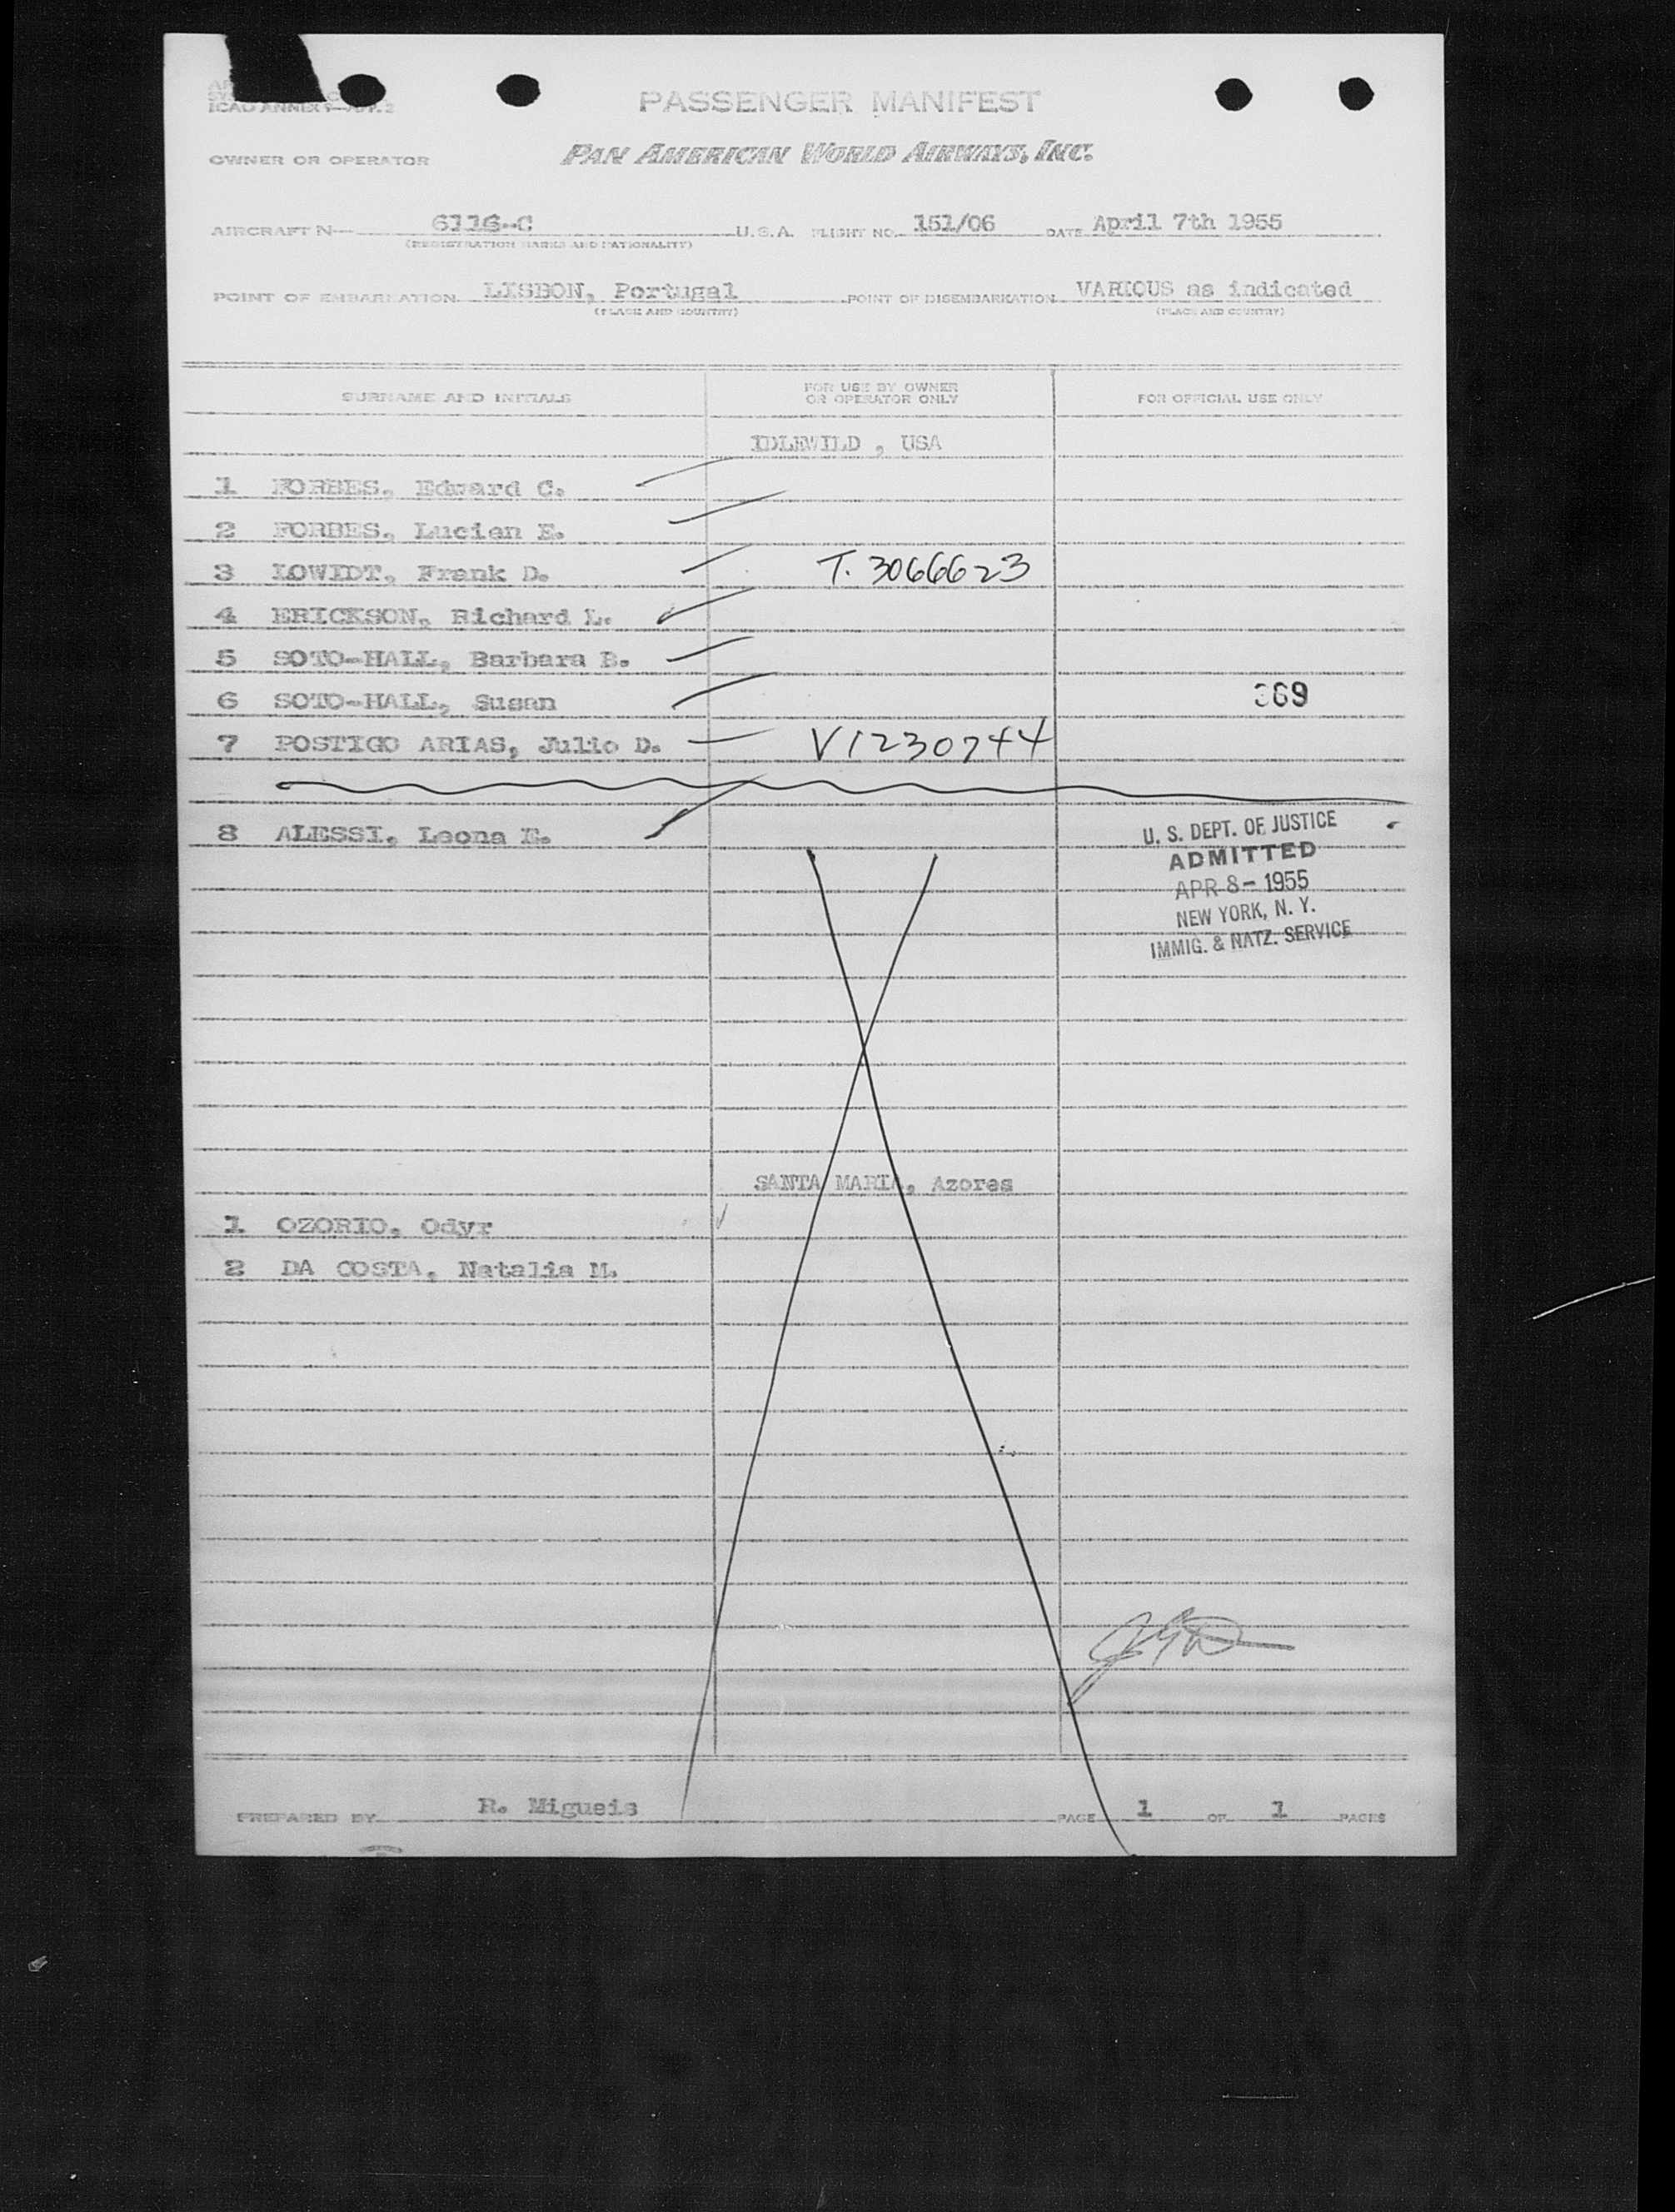 ICAO ANNEX
PASSENGER MANIFEST
OWNER OR OPERATOR PAN AMERICAN WORLD AIRWAYS, INC.
AIRCRAFT N— 6116-C U.S.A. FLIGHT NO. 151/06 DATE April 7th 1955
(REGISTRATION MARKS AND NATIONALITY)
POINT OF EMBARKATION LISBON, Portugal POINT OF DISEMBARKATION VARIOUS as indicated
(PLACE AND COUNTRY) (PLACE AND COUNTRY)
SURNAME AND INITIALS FOR USE BY OWNER OR OPERATOR ONLY FOR OFFICIAL USE ONLY
IDLEWILD , USA
1 FORBES, Edward C.
2 FORBES, Lucien E.
3 LOWIDT, Frank D. T. 3066623
4 ERICKSON, Richard L.
5 SOTO-HALL, Barbara B.
6 SOTO-HALL, Susan 369
7 POSTIGO ARIAS, Julio D. V1230744
8 ALESSI, Leona E.
U. S. DEPT. OF JUSTICE
ADMITTED
APR 8 - 1955
NEW YORK, N. Y.
IMMIG. & NATZ. SERVICE
SANTA MARIA, Azores
1 OZORIO, Odyr
2 DA COSTA, Natalia M.
PREPARED BY R. Migueis PAGE 1 OF 1 PAGES